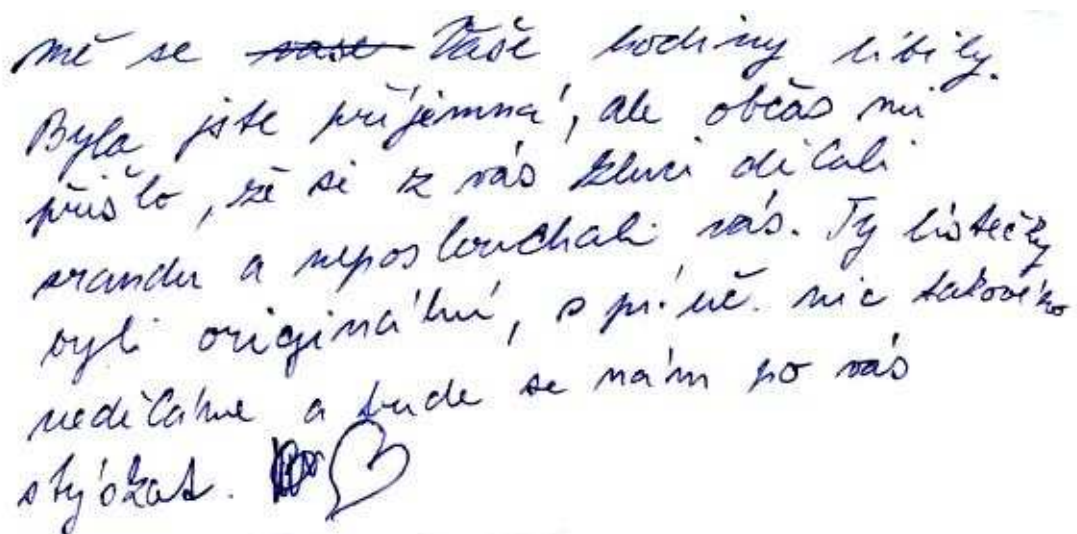 mě se Vaše hodiny líbily.
Byla jste príjemná, ale občas mi
přišlo, že si z vás kluci dělali
srandu a neposlouchali vás. Ty lístečky
byli originální, s p. uč. nic takového
neděláme a bude se nám po vás
stýskat.